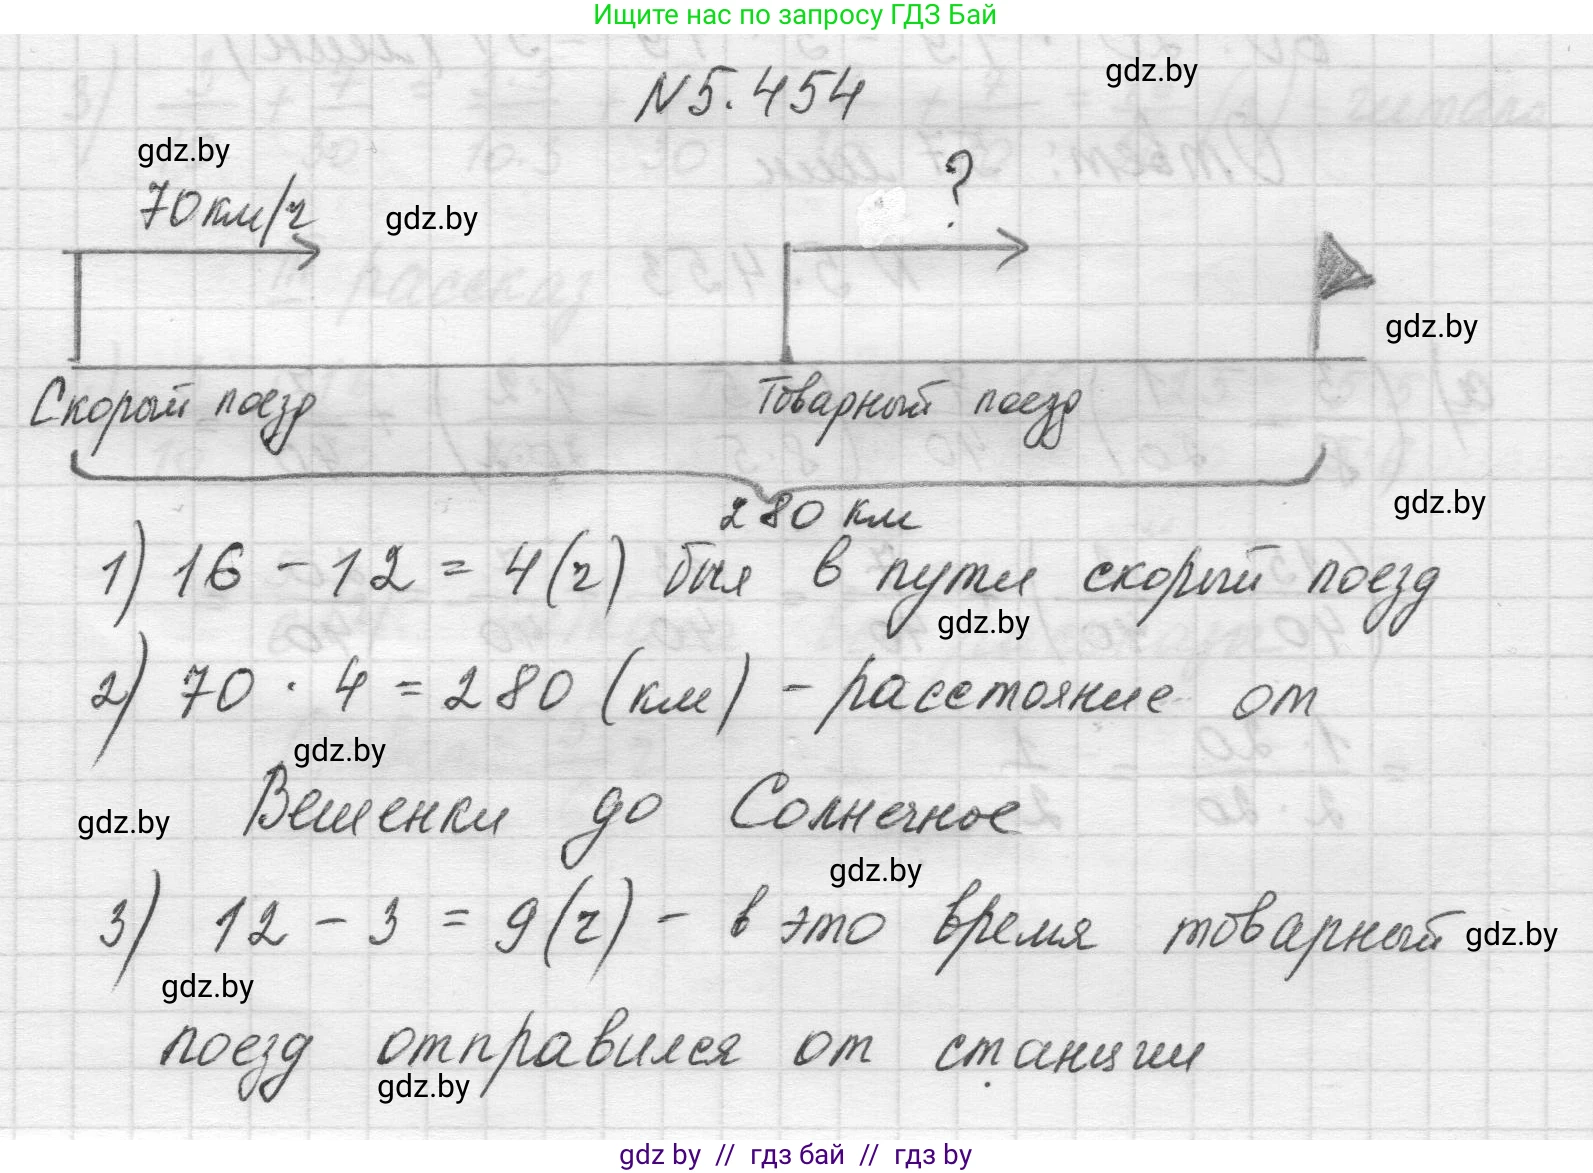 Ищите нас по запросу ГДЗ Бай
N 5.454
gdz.by
gdz.by
70 км/ч
gdz.by
?
gdz.by
Скорый поезд
Товарный поезд
280 км
gdz.by
1) 16 - 12 = 4 (ч) был в пути скорый поезд
gdz.by
2) 70 · 4 = 280 (км) - расстояние от
gdz.by
Вешенки до Солнечное
gdz.by
gdz.by
3) 12 - 3 = 9 (ч) - в это время товарный
gdz.by
gdz.by
поезд отправился от станции
gdz.by
gdz by // гдз бай // гдз by